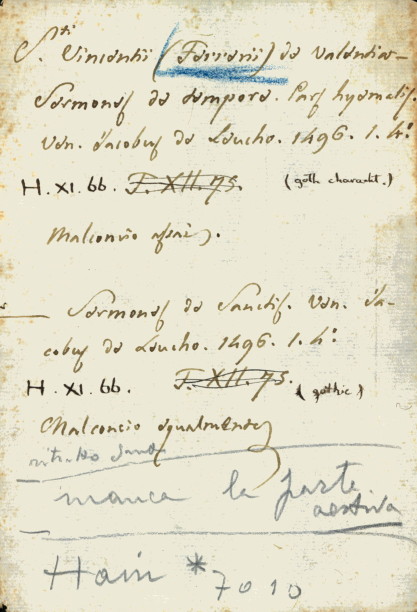 S.ti Vincentii (Ferrerii) de Valentia
Sermones de tempore. Pars hyemalis.
Ven. Jacobus de Leucho. 1496. 1. 4.º
H. XI. 66. F. XII. 75. (goth charact.)
Malconcio assai.
Sermones de Sanctis. Ven. Ja-
cobus de Leucho. 1496. 1. 4.º
H. XI. 66. F. XII. 75. (gothic)
Malconcio egualmente
manca la parte
aestiva
Hain * 7010